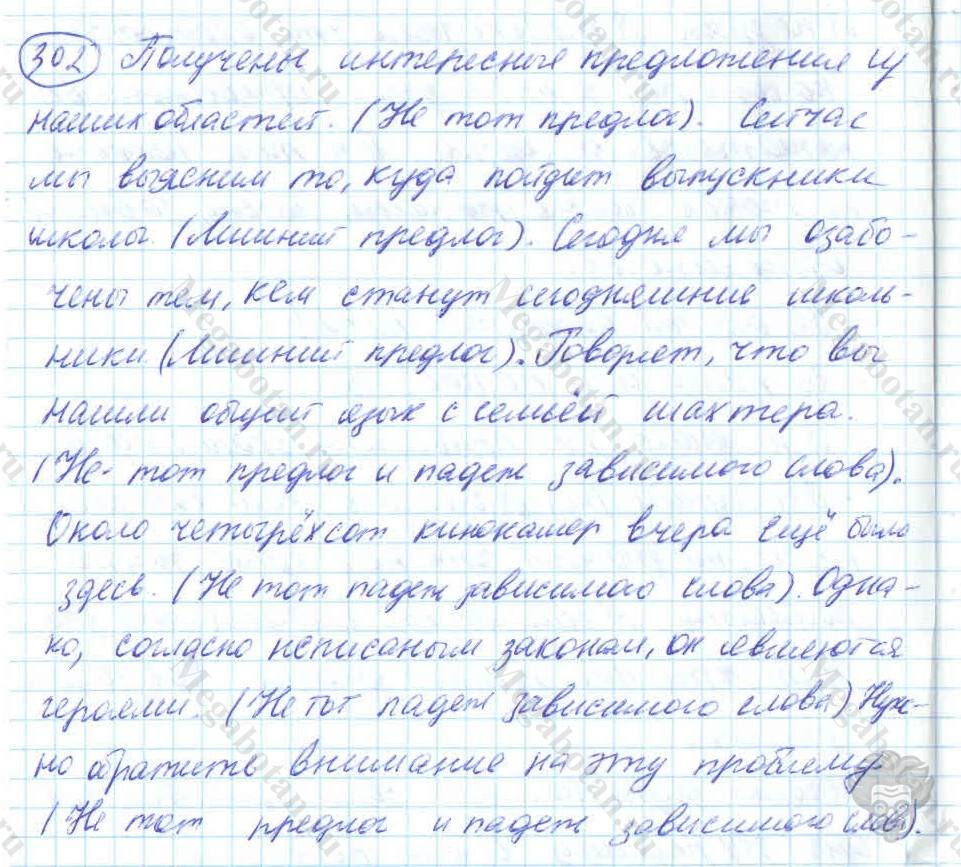 302 Получены интересные предложения из
наших областей. (Не тот предлог). Сейчас
мы выясним то, куда пойдут выпускники
школы. (Лишний предлог). Сегодня мы озабо-
чены тем, кем станут сегодняшние школь-
ники. (Лишний предлог). Говорят, что вы
нашли общий язык с семьёй шахтера.
(Не тот предлог и падеж зависимого слова).
Около четырёхсот кинокамер вчера ещё было
здесь. (Не тот падеж зависимого слова). Одна-
ко, согласно неписаным законам, он являются
героями. (Не тот падеж зависимого слова) Нуж-
но обратить внимание на эту проблему
(Не тот предлог и падеж зависимого слова).
Megabotan.ru